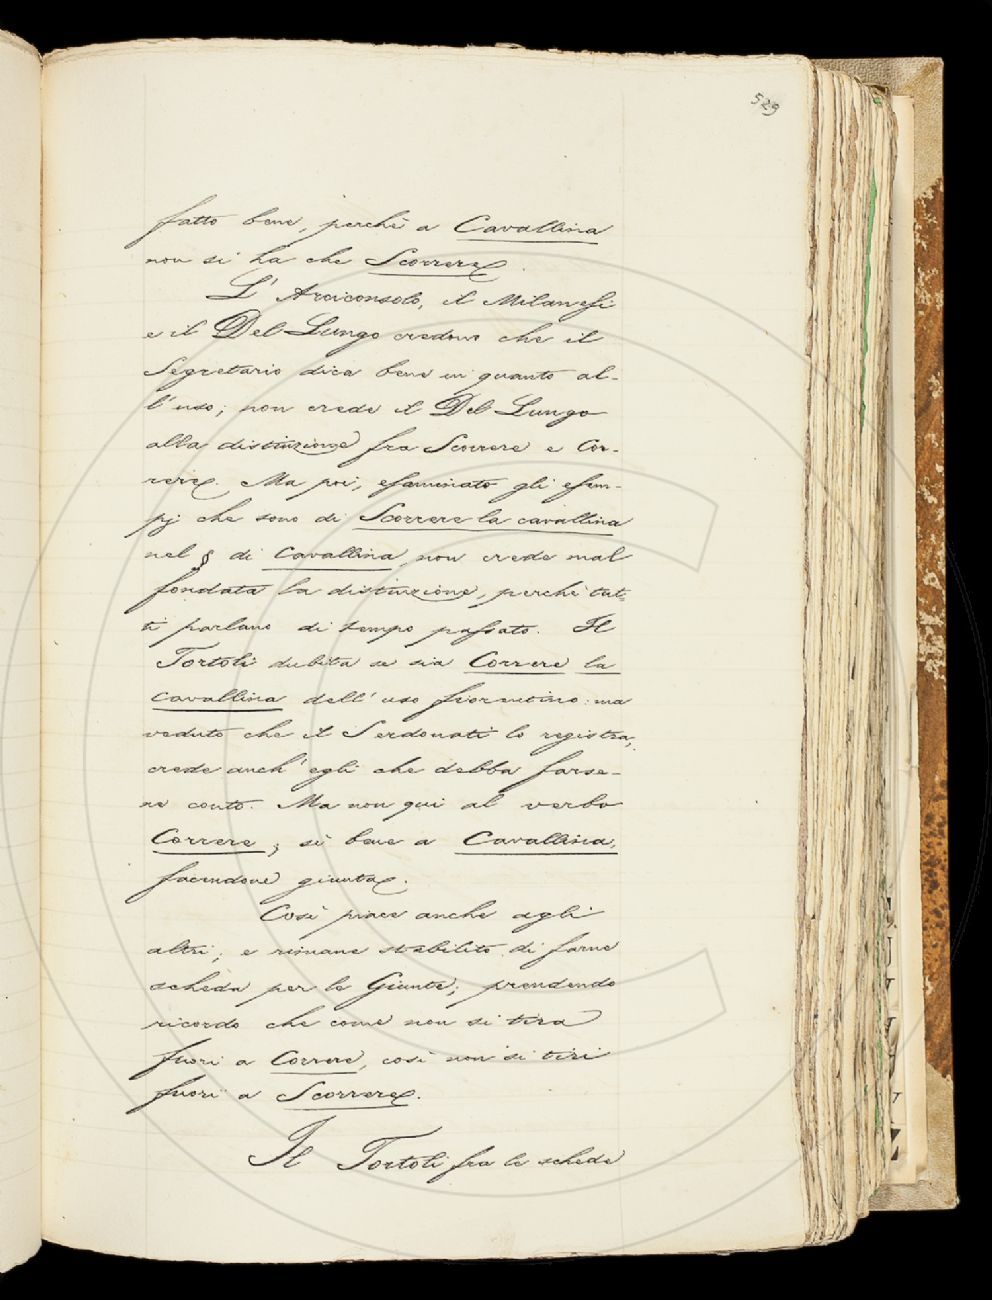 529
fatto bene, perchè a Cavallina
non si ha che Scorrere.
L' Arciconsolo, il Milanesi
e il Del Lungo credono che il
Segretario dica bene in quanto al-
l'uso; non crede il Del Lungo
alla distinzione fra Scorrere e Cor-
rere. Ma poi, esaminato gli esem-
pj che sono di Scorrere la cavallina
nel § di Cavallina, non crede mal
fondata la distinzione, perchè tut-
ti parlano di tempo passato. Il
Tortoli dubita se sia Correre la
cavallina dell' uso fiorentino: ma
veduto che il Serdonati lo registra,
crede anch' egli che debba farse-
ne conto. Ma non qui al verbo
Correre; sì bene a Cavallina,
facendone giunta.
Così piace anche agli
altri; e rimane stabilito di farne
scheda per le Giunte; prendendo
ricordo che come non si tira
fuori a Correre, così non si tiri
fuori a Scorrere.
Il Tortoli fra le schede